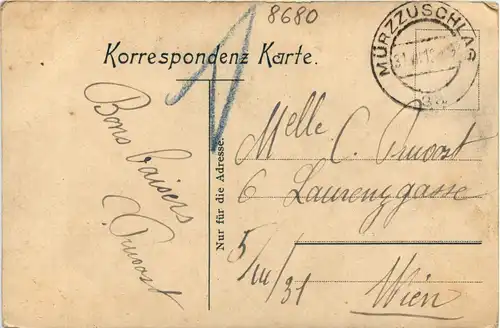 8680
Korrespondenz Karte.
MÜRZZUSCHLAG
1
Bons baisers
C. Pruvost
Nur für die Adresse.
Melle C. Pruvost
6 Laurenzgasse
5/III/31
Wien